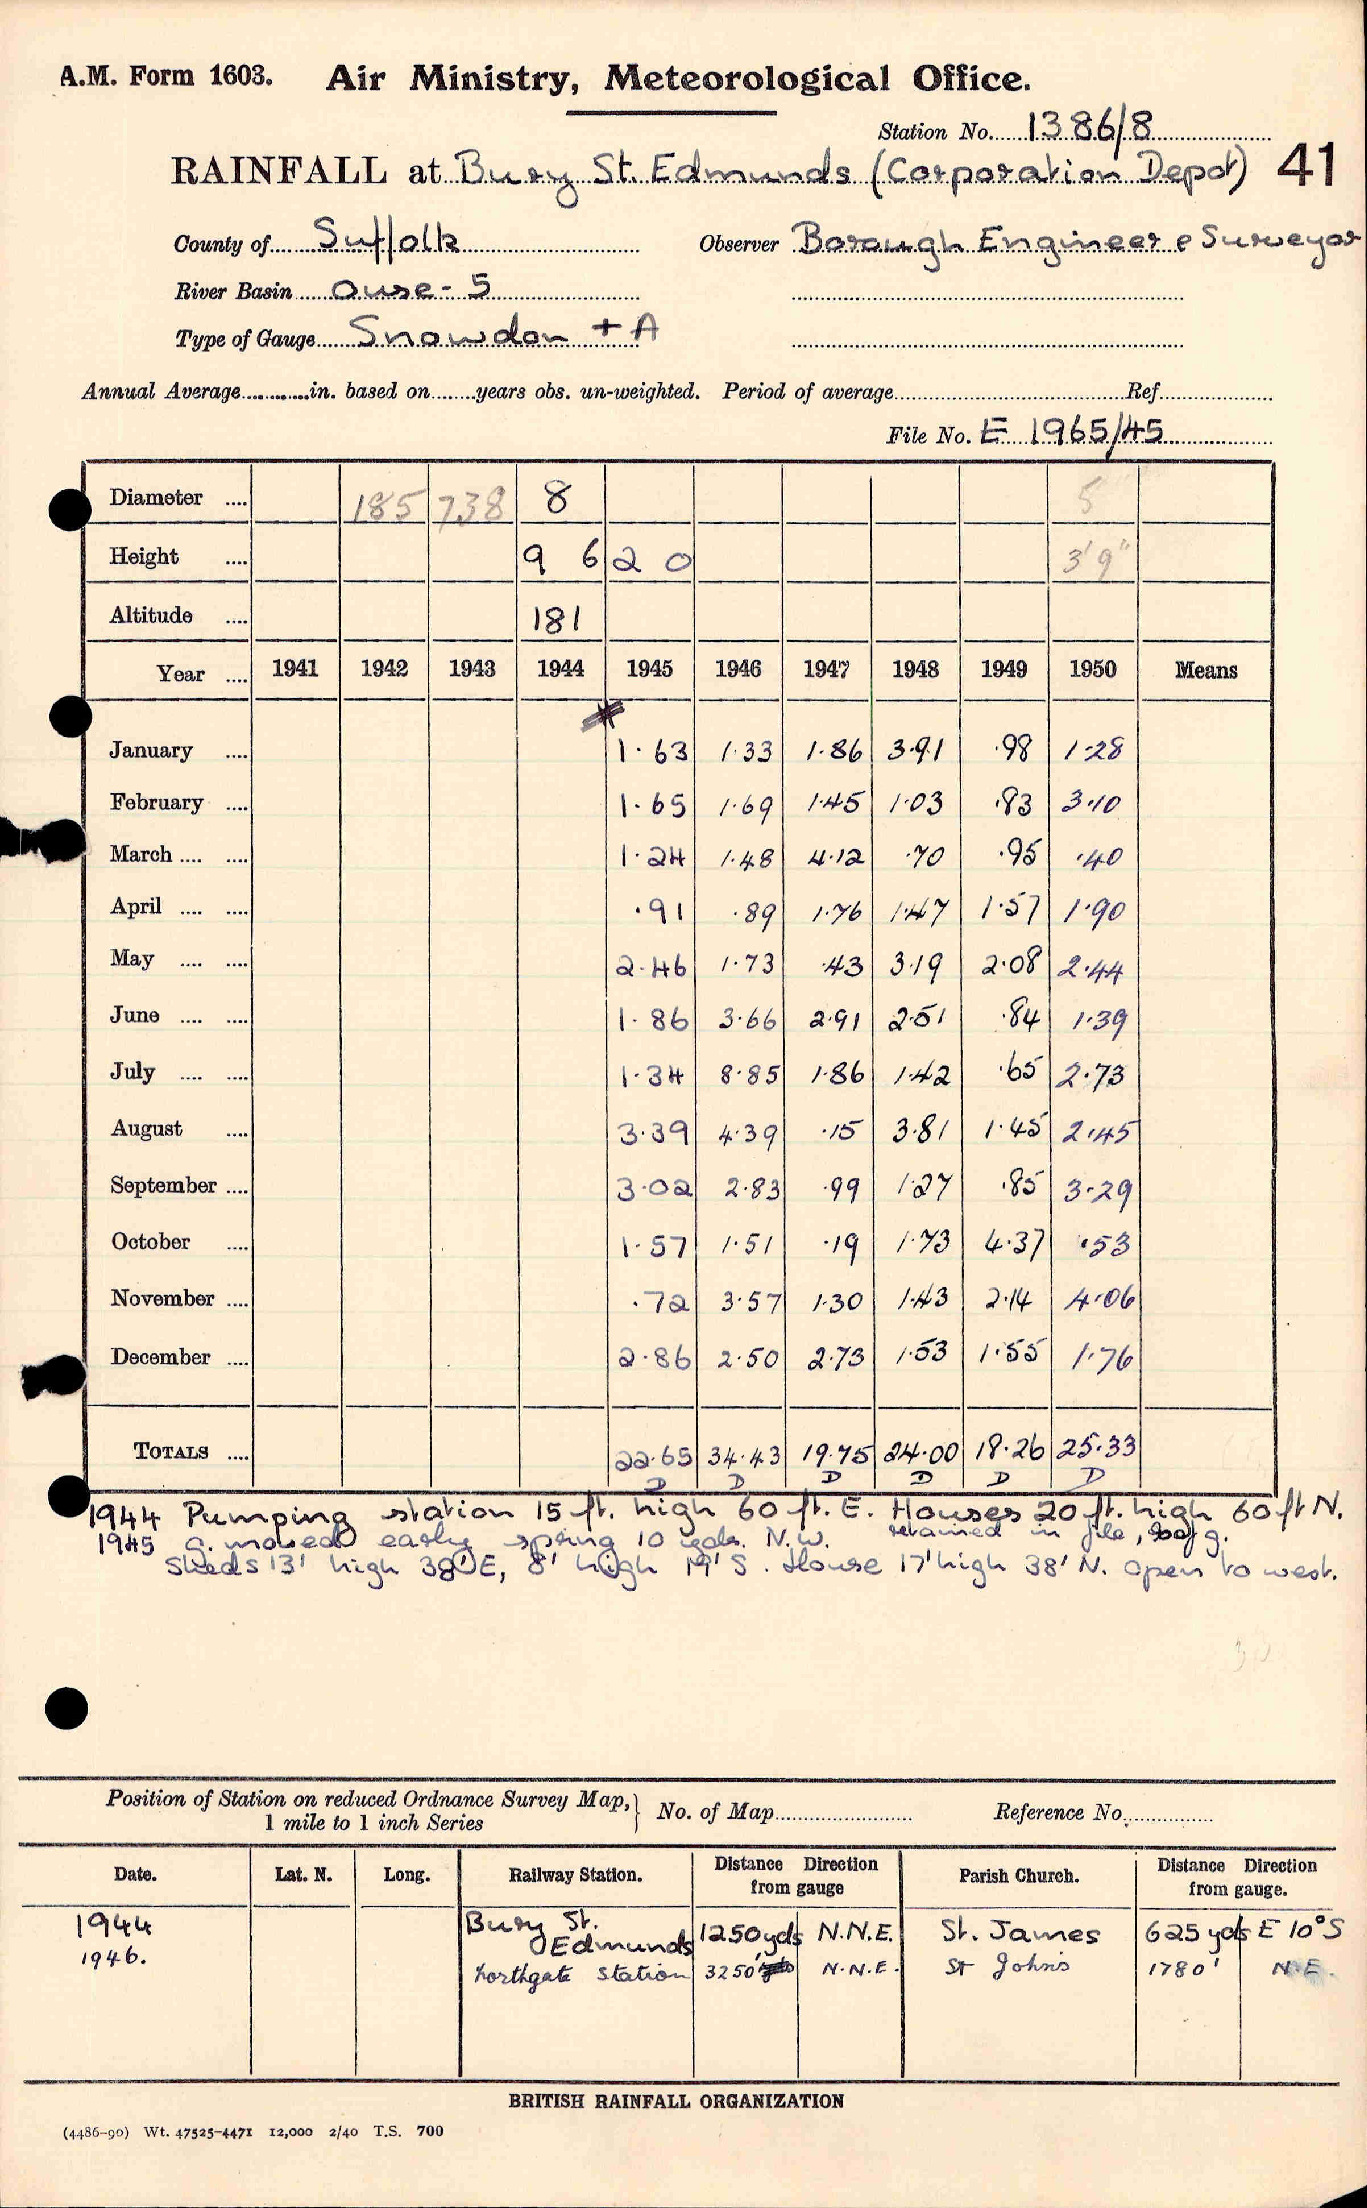 A.M. Form 1603. Air Ministry, Meteorological Office.
Station No. 1386/8
RAINFALL at Bury St. Edmunds (Corporation Depot) 41
County of Suffolk Observer Borough Engineer & Surveyor
River Basin Ouse - 5
Type of Gauge Snowdon + A
Annual Average in. based on years obs. un-weighted. Period of average Ref.
File No. E 1965/45
Diameter 185 738 8 5
Height 9 6 2 0 3' 9"
Altitude 181
Year 1941 1942 1943 1944 1945 1946 1947 1948 1949 1950 Means
January 1.63 1.33 1.86 3.91 .98 1.28
February 1.65 1.69 1.45 1.03 .83 3.10
March 1.24 1.48 4.12 .70 .95 .40
April .91 .89 1.76 1.47 1.57 1.90
May 2.46 1.73 .43 3.19 2.08 2.44
June 1.86 3.66 2.91 2.51 .84 1.39
July 1.34 8.85 1.86 1.42 .65 2.73
August 3.39 4.39 .15 3.81 1.45 2.45
September 3.02 2.83 .99 1.27 .85 3.29
October 1.57 1.51 .19 1.73 4.37 .53
November .72 3.57 1.30 1.43 2.14 4.06
December 2.86 2.50 2.73 1.53 1.55 1.76
TOTALS 22.65 34.43 19.75 24.00 18.26 25.33
D D D D D D
1944 Pumping station 15 ft. high 60 ft. E. Houses 20 ft. high 60 ft N.
1945 G. moved early spring 10 yds. N.W. retained in file,
Sheds 13' high 38' E, 8' high 19' S. House 17' high 38' N. open to west.
Position of Station on reduced Ordnance Survey Map, 1 mile to 1 inch Series No. of Map Reference No.
Date. Lat. N. Long. Railway Station. Distance Direction from gauge Parish Church. Distance Direction from gauge.
1944 Bury St. Edmunds 1250 yds N.N.E. St. James 625 yds E 10° S
1946. Northgate Station 3250' N.N.E. St Johns 1780' N.E.
BRITISH RAINFALL ORGANIZATION
(4486-90) Wt. 47525-4471 12,000 2/40 T.S. 700